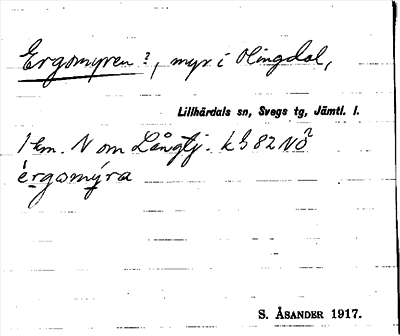 Ergomyren?, myr i Olingdal,
Lillhärdals sn, Svegs tg, Jämtl. l.
1 km. N om Långtj. kb 82 NÖ
ergomyra
S. ÅSANDER 1917.